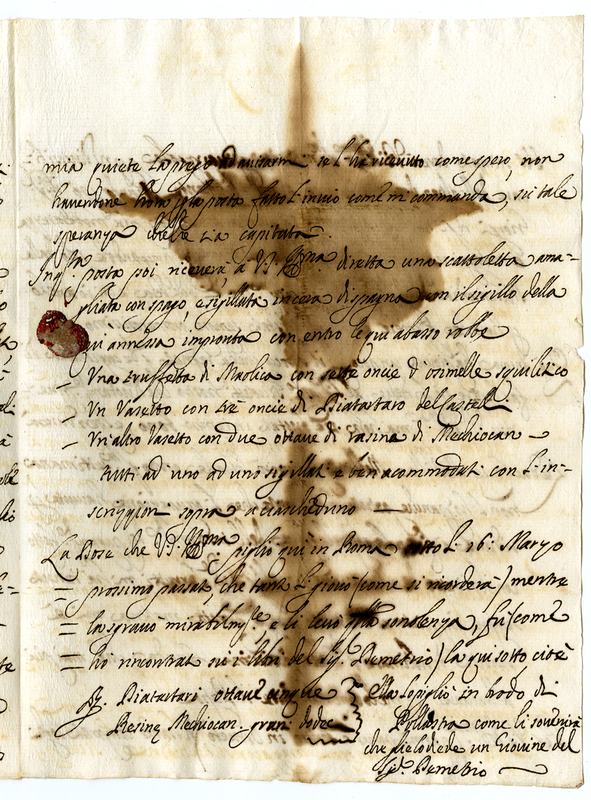 mia quiete la prego ad avisarmi se l'ha ricevuto come spero, non
havendone hora p la posta fatto l'invio come m commanda, su tale
speranza che le sia capitata.
In qta posta poi riceverà V. S. Illma diretta una scattoletta ama-
gliata con spago, e sigillata in cera di spagna con il sigillo della
qui annessa impronta con entro le qui abasso robbe
– Una truffetta di Maolica con sette oncie d'osimelle squilitico
– Un Vasetto con tre oncie di Diatartaro del Castell.
– Un altro Vasetto con due ottave di rasina di Mechiocan –
tutti ad uno ad uno sigillati e ben accommodati con l'in-
scrizzion sopra a ciascheduno —
La Dose che V. S. Illma pigliò quì in Roma sotto l. 16. Marzo
= prossimo passat, che tant l. giovò (come si ricorderà) mentre
= la sgravò mirabilmte, e li levò la sonolenza, fù (come
= hò rincontrat su i libri del Sig. Demetrio) la qui sotto cioè
Diatartari ottave cinque
Resing Mechiocan. grani dodec.
ella lo pigliò in brodo di
Pollastra come li sovenirà
che glielo diede un Giovine del
Sig. Demetrio —